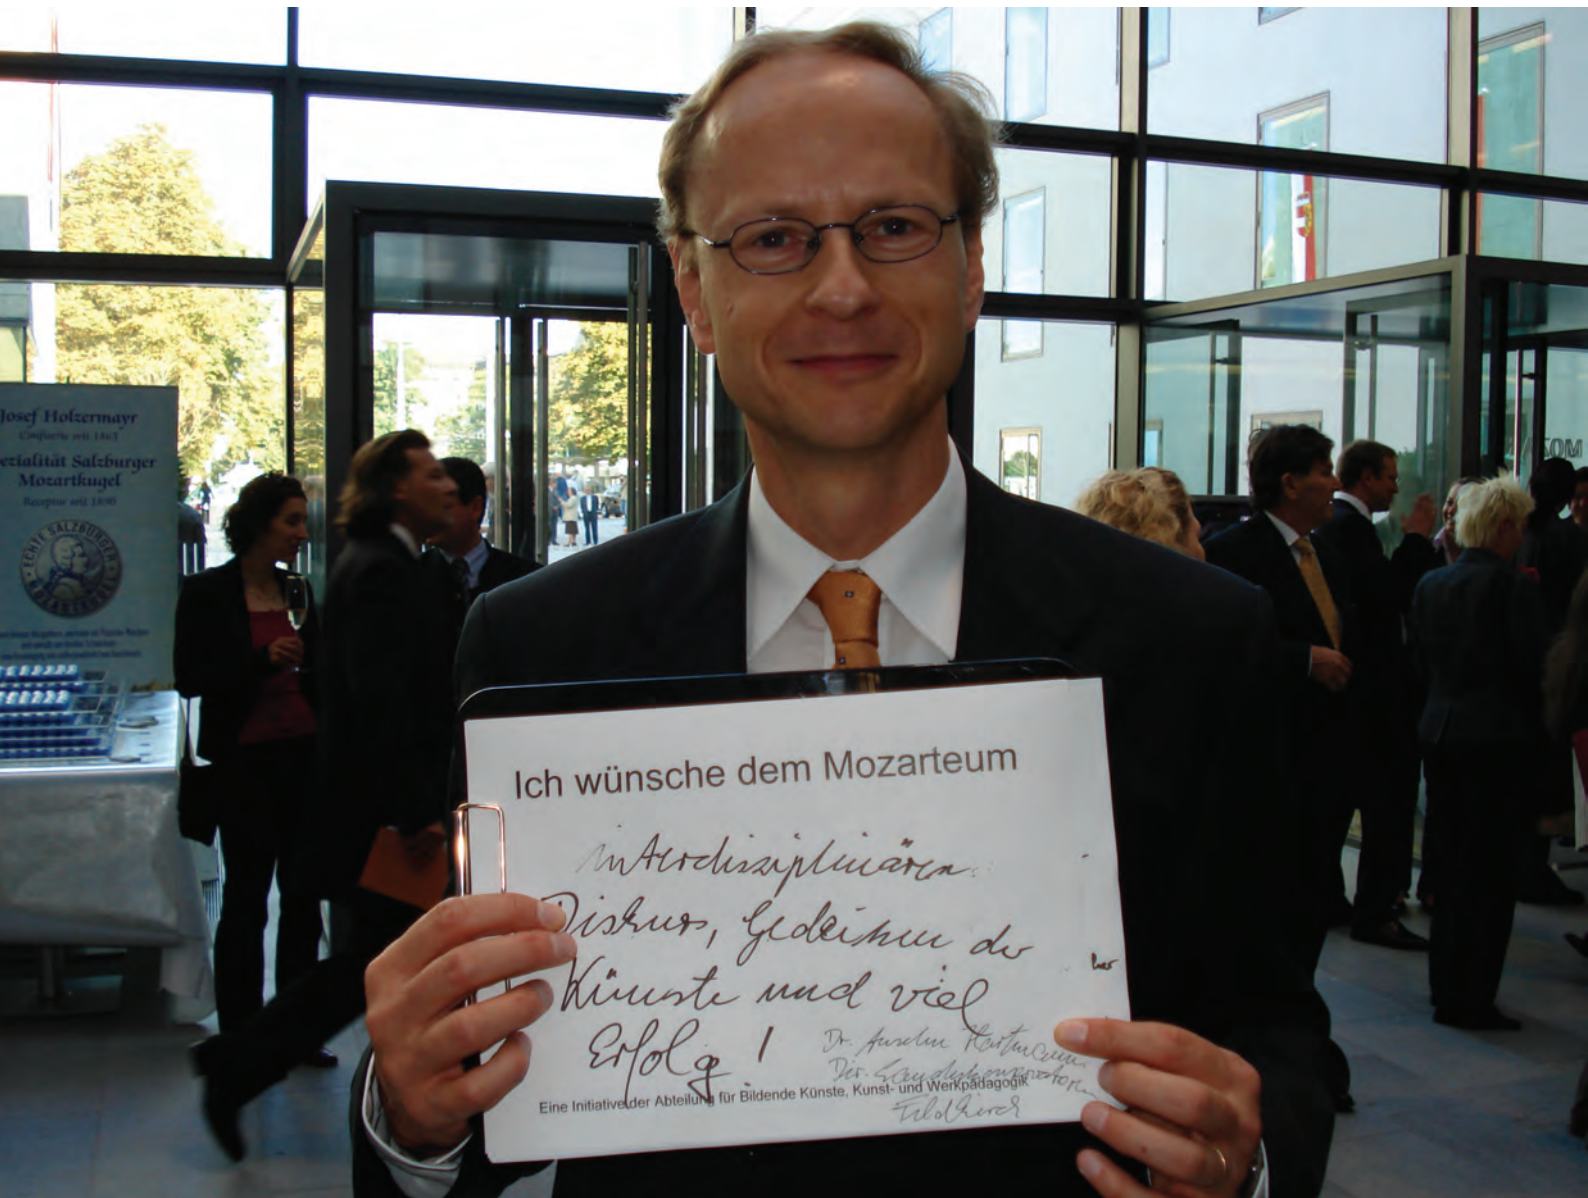 Josef Holzermayr
Confiserie seit 1865
ezialität Salzburger
Mozartkugel
Rezeptur seit 1890
ECHTE SALZBURGER
MOZA
Ich wünsche dem Mozarteum
interdisziplinären
Diskurs, Gedeihen der
Künste und viel
Erfolg!
Dr. Anselm Hartmann
Dir. Landeskonservatorium
Feldkirch
Eine Initiative der Abteilung für Bildende Künste, Kunst- und Werkpädagogik